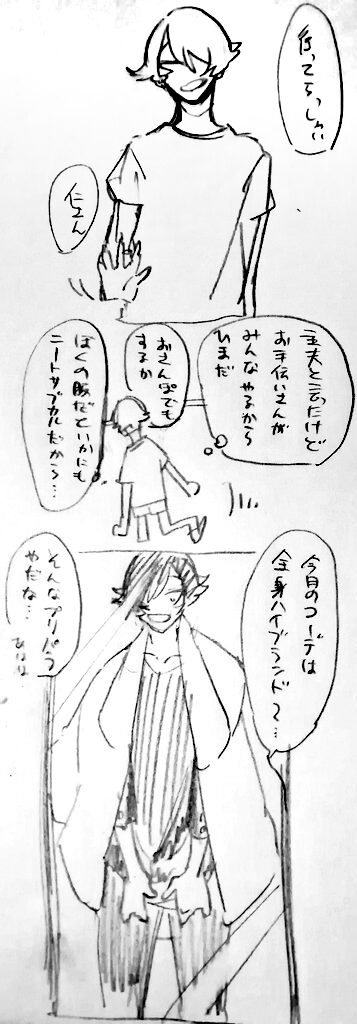 行ってらっしゃい
仁さん
主夫と云ったけど
お手伝いさんが
みんなやるから〜
ひまだ
おさんぽでも
するか
ぼくの服だといかにも
ニートサブカルだから…
今日のコーデは
全身ハイブランド〜…
そんなプリパラ
やだな…